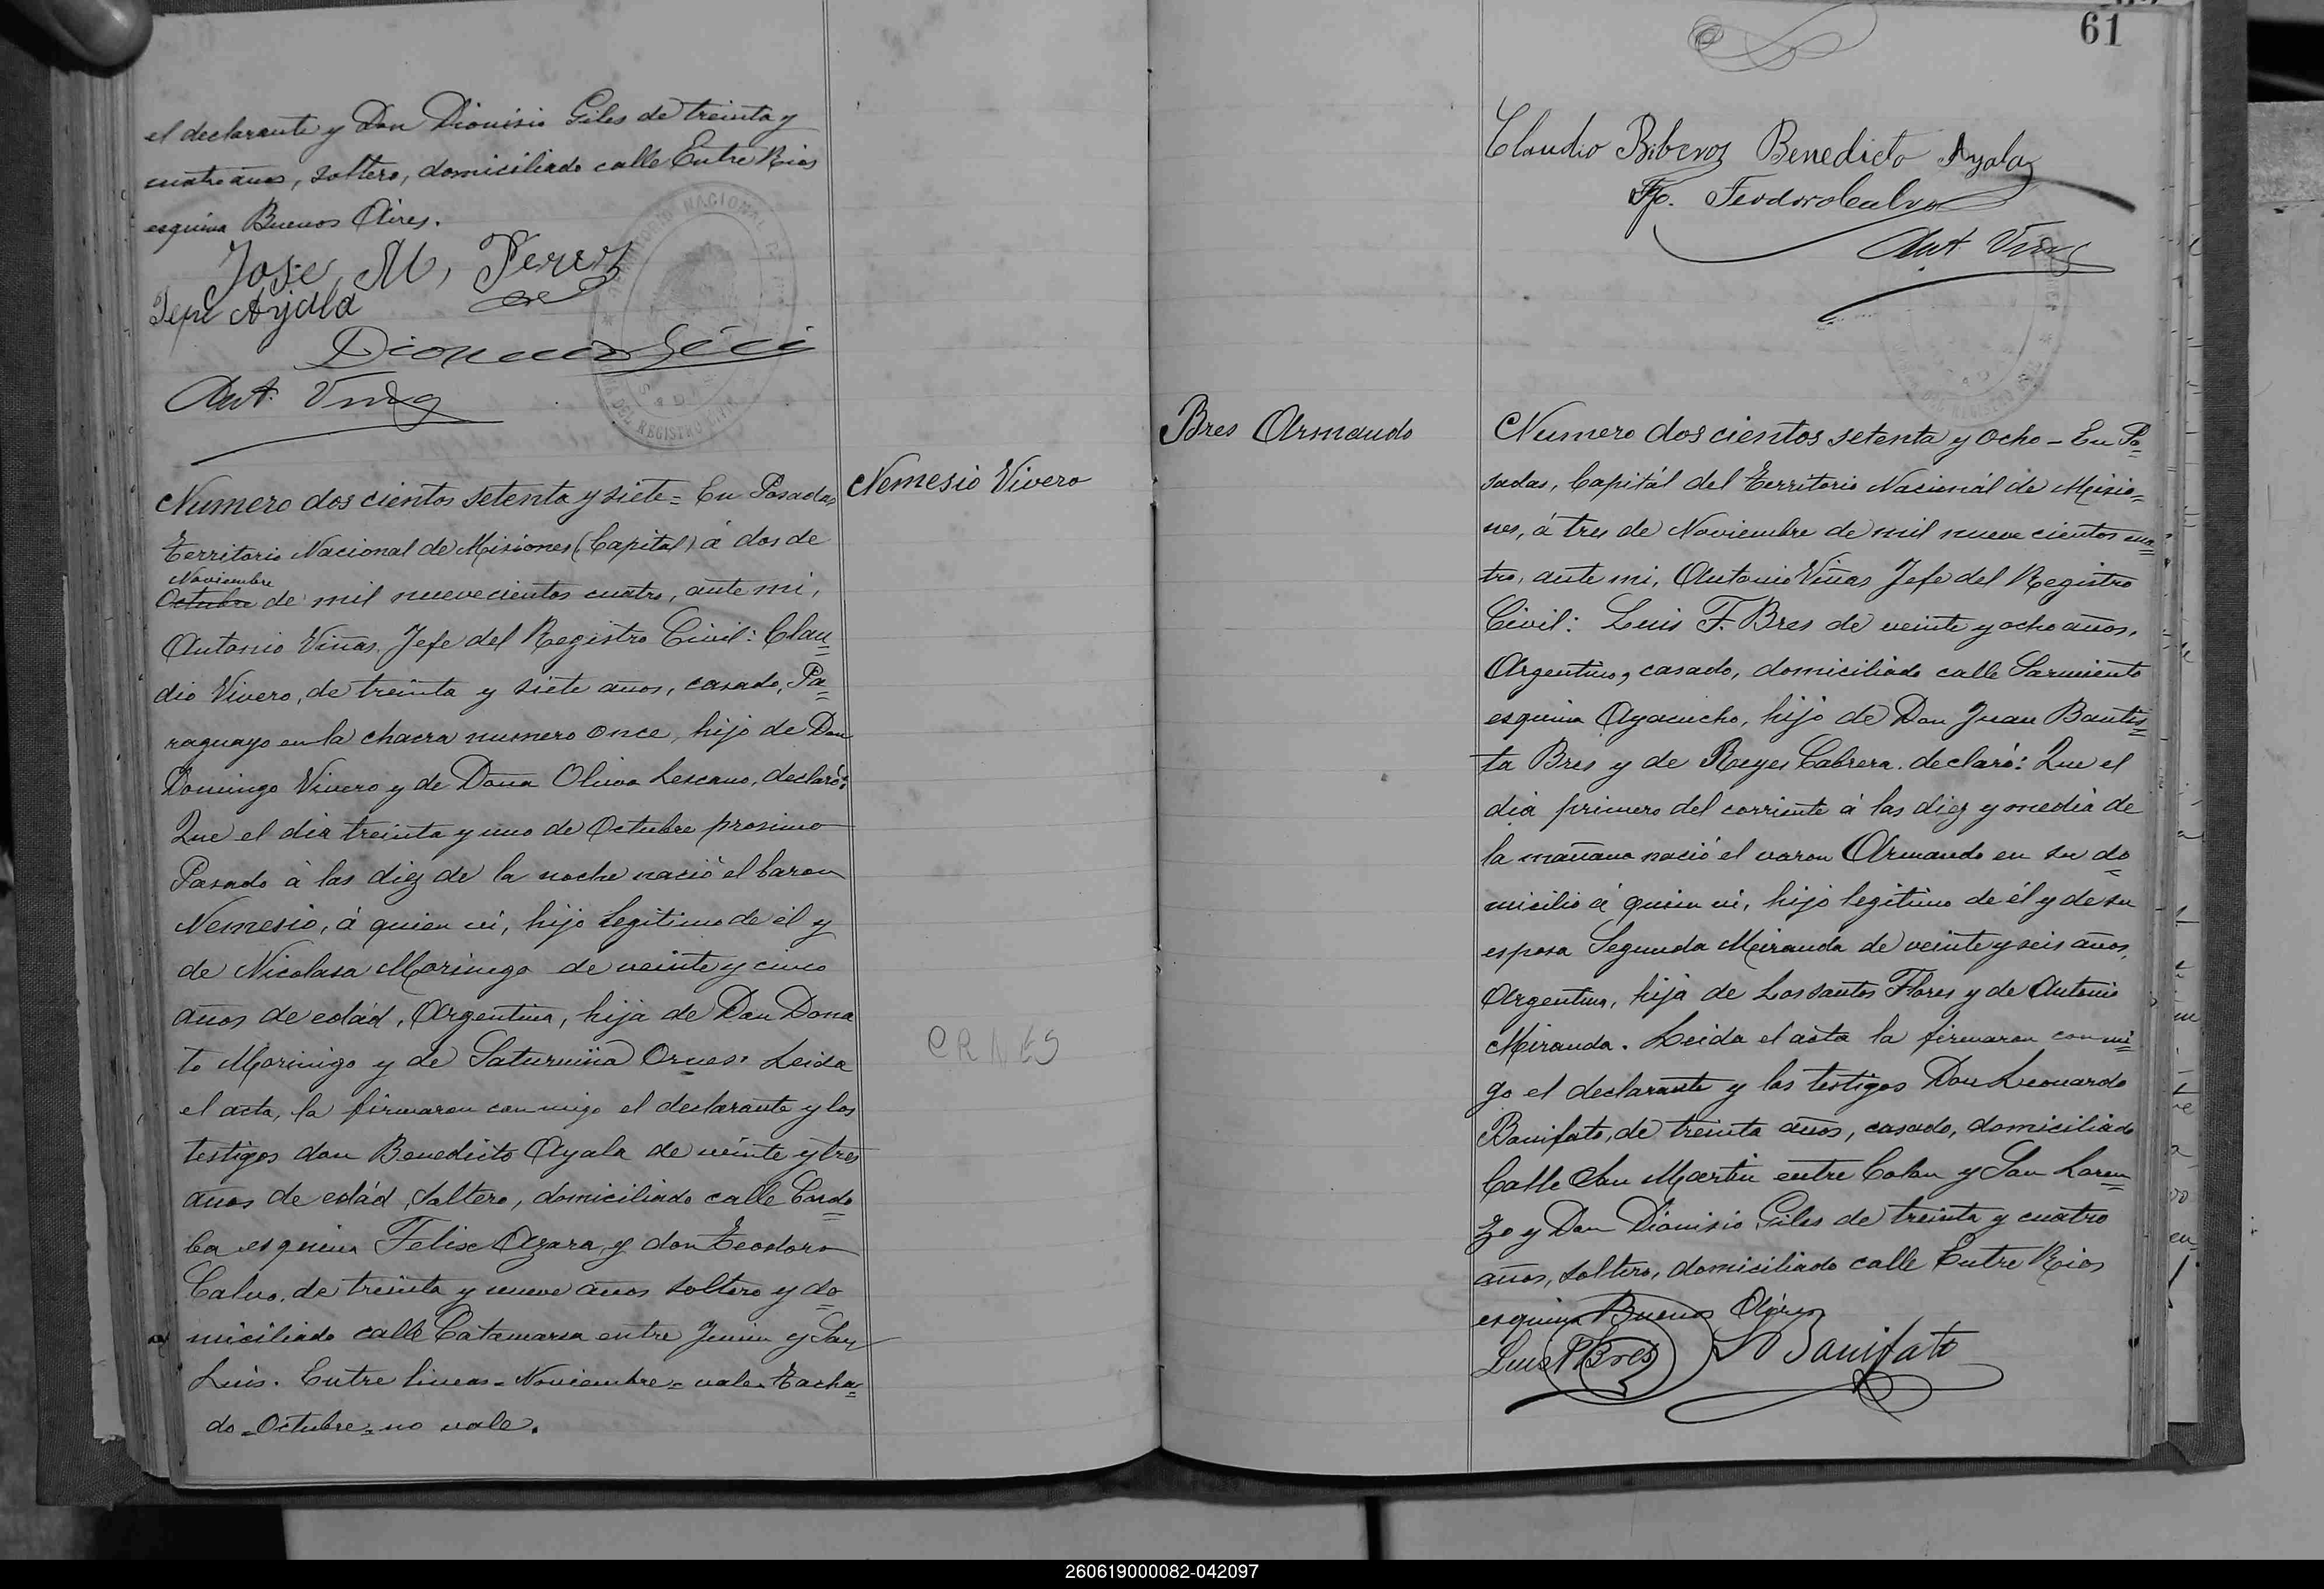 el declarante y Don Dionisio Giles de treinta y
cuatro años, soltero, domiciliado calle Entre Rios
esquina Buenos Aires.
Jose, M, Perez
Ayala
Ant. Viñas
TERRITORIO NACIONAL
DEL REGISTRO CIVIL
Numero dos cientos setenta y siete = En Posadas
Territorio Nacional de Misiones (Capital) á dos de
Noviembre
Octubre de mil nuevecientos cuatro, ante mi,
Antonio Viñas, Jefe del Registro Civil: Clau=
dio Vivero, de treinta y siete años, casado, Pa=
raguayo en la chacra numero once, hijo de Don
Domingo Vivero y de Doña Oliva Lescano, declaró:
Que el dia treinta y uno de Octubre prosimo
Pasado á las diez de la noche nació el baron
Nemesio, á quien vi, hijo legitimo de él y
de Nicolasa Morinigo de veinte y cinco
años de edád, Argentina, hija de Don Dona
to Morinigo y de Saturnina Ornes. Leida
el acta, la firmaron conmigo el declarante y los
testigos don Benedicto Ayala de veinte y tres
años de edád, soltero, domiciliado calle Cordo=
ba esquina Felix Azara, y don Teodoro
Calvo, de treinta y nueve años soltero y do=
miciliado calle Catamarca entre Junin y San
Luis. Entre lineas = Noviembre = vale. Tacha=
do = Octubre = no vale.
Nemesio Vivero
CRNES
61
Claudio Riberos Benedicto Ayala
Teodoro Calvo
Ant Viñas
Bres Armando
Numero dos cientos setenta y ocho - En Po=
sadas, Capitál del Territorio Nacionál de Misio=
nes, á tres de Noviembre de mil nueve cientos cua=
tro, ante mi, Antonio Viñas Jefe del Registro
Civil: Luis F. Bres de veinte y ocho años,
Argentino, casado, domiciliado calle Sarmiento
esquina Ayacucho, hijo de Don Juan Bautis=
ta Bres y de Reyes Cabrera. declaró: Que el
dia primero del corriente á las diez y media de
la mañana nació el varon Armando en su do=
micilio á quien vi, hijo legitimo de él y de su
esposa Segunda Miranda de veinte y seis años,
Argentina, hija de Los santos Flores y de Antonio
Miranda. Leida el acta la firmaron con mi=
go el declarante y los testigos Don Leonardo
Banifato, de treinta años, casado, domiciliado
Calle San Martin entre Colon y San Loren=
zo y Don Dionisio Giles de treinta y cuatro
años, soltero, domiciliado calle Entre Rios
esquina Buenos Aires
Luis F Bres L Banifato
260619000082-042097